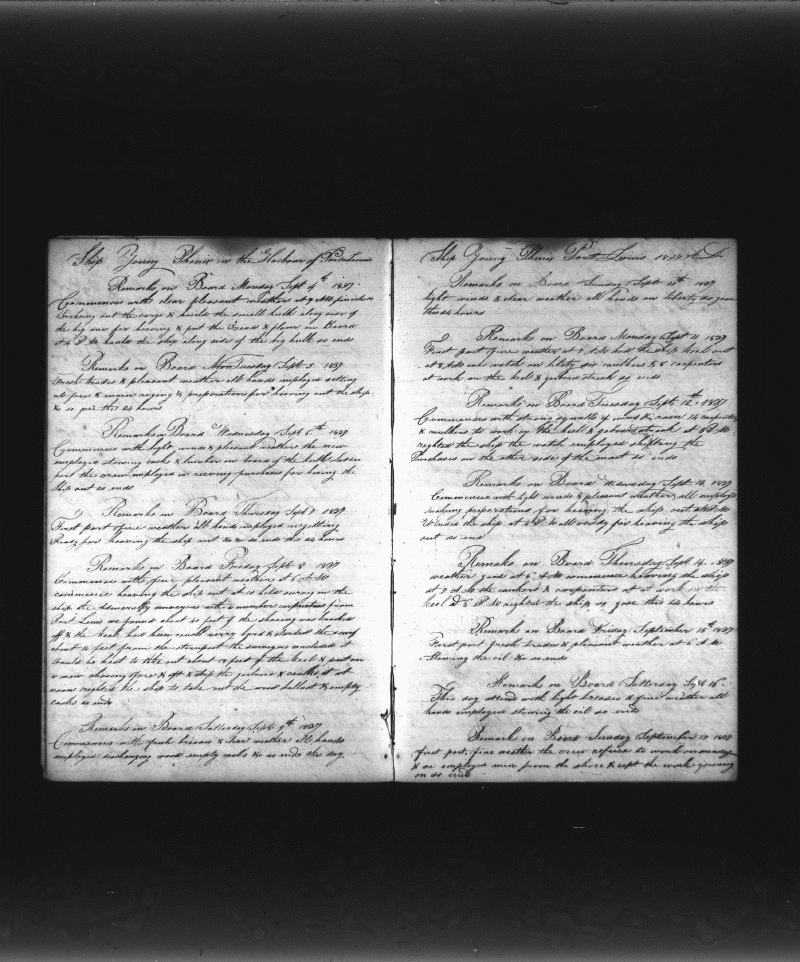 Ship Young Phenix in the Harbour of Port Louis
Remarks on Board Monday Sept 4th 1837
Commences with clear pleasant weather at 9 AM finished
Breaking out the cargo & hauld the small hulk along side of
the big one for heaving & put the Bread & flour on Board
at 5 P M hauld the ship along side of the big hulk so ends
Remarks on Board Tuesday Sept 5 1837
Fresh trades & pleasant weather all hands employed setting
up fore & main riging & preparations for heaving out the ship
& so ends the 24 hours
Remarks on Board Wednesday Sept 6th 1837
Commences with light winds & pleasant weather the men
employed stowing casks & lumber in the of the hulk
part the crew employed in reeving purchases for heaving the
Ship out so ends
Remarks on Board Thursday Sept 7 1837
First part fine weather all hands employed in getting
Ready for heaving the ship out &c &c so ends this 24 hours
Remarks on Board Friday Sept 8 1837
Commences with fine pleasant weather at 6 A M
commence heaving the ship out at 10 held survey on the
ship the admeralty surveyors with a number from
Port Louis we found about 40 feet of the shoeing was knocked
off & the keel had been
about 10 feet from the the surveyors concluded it
would be best to take out about 18 feet of the keel & put on
a new shoeing fore & aft & strip the garboards & caulk it at
noon righted the ship to take out the wood ballast & empty
casks so ends
Remarks on Board Satterday Sept 9th 1837
Commences with fresh breeses & clear weather all hands
employed discharging wood empty casks &c so ends the day
Ship Young Phenix Port Louis 1837
Remarks on Board Sunday Sept 10th 1837
light winds & clear weather all hands on liberty so gone
these hours
Remarks on Board Monday Sept 11 1837
First part fine weather at 6 AM had the ship keel out
at 8 AM one watch on liberty six caulkers & 8 carpenters
at work on the keel & garbord streak so ends
Remarks on Board Tuesday Sept 12th 1837
Commences with strong squalls of wind & rain 14 carpenters
& caulkers to work on the keel & garbord streak at 5 P M
righted the ship the watch employed shifting the
Purchases on the other side of the mast so ends
Remarks on Board Wednesday Sept 13 1837
Commences with light winds & pleasant weather all employed
making preparations for heaving the ship out at
the ship at 5 P M all ready for heaving the ship
out so end
Remarks on Board Thursday Sept 14 1837
weather good at 6 A M commence heaving the ship
at 7 A M the caulkers & carpenters at at work on the
keel at 5 P M righted the ship so gone this 24 hours
Remarks on Board Friday September 15th 1837
First part fresh trades & pleasant weather at 6 A M
Stowing the oil &c so ends
Remarks on Board Satterday Sept 16
This day attend with light breeses & fine weather all
hands employed stowing the oil so ends
Remarks on Board Sunday September 17 1837
first part fine weather the crew refuse to work on sunday
& we employed men from the shore & kept the work going
on so ends